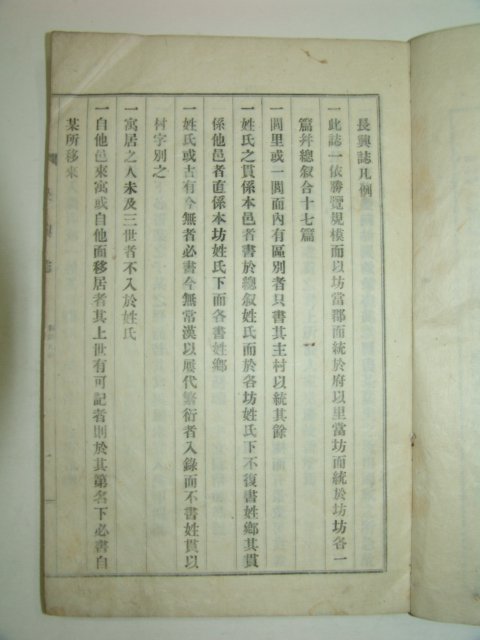 長興誌凡例
一此誌一依勝覽規模而以坊當郡面統於府以里當坊面統於坊坊各一
篇幷總叙合十七篇
一閭里或一閭而內有區別者只書其主村以統其餘
一姓氏之貫係本邑者書於總叙姓氏而於各坊姓氏下不復書姓鄕其貫
係他邑者直係本坊姓氏下面各書姓鄕
一姓氏或古有今無者必書今無常漢以屢代繁衍者入錄而不書姓貫以
村字別之
一寓居之人未及三世者不入於姓氏
一自他邑來寓或自他面移居者其上世有可記者則於其第名下必書自
某所移來